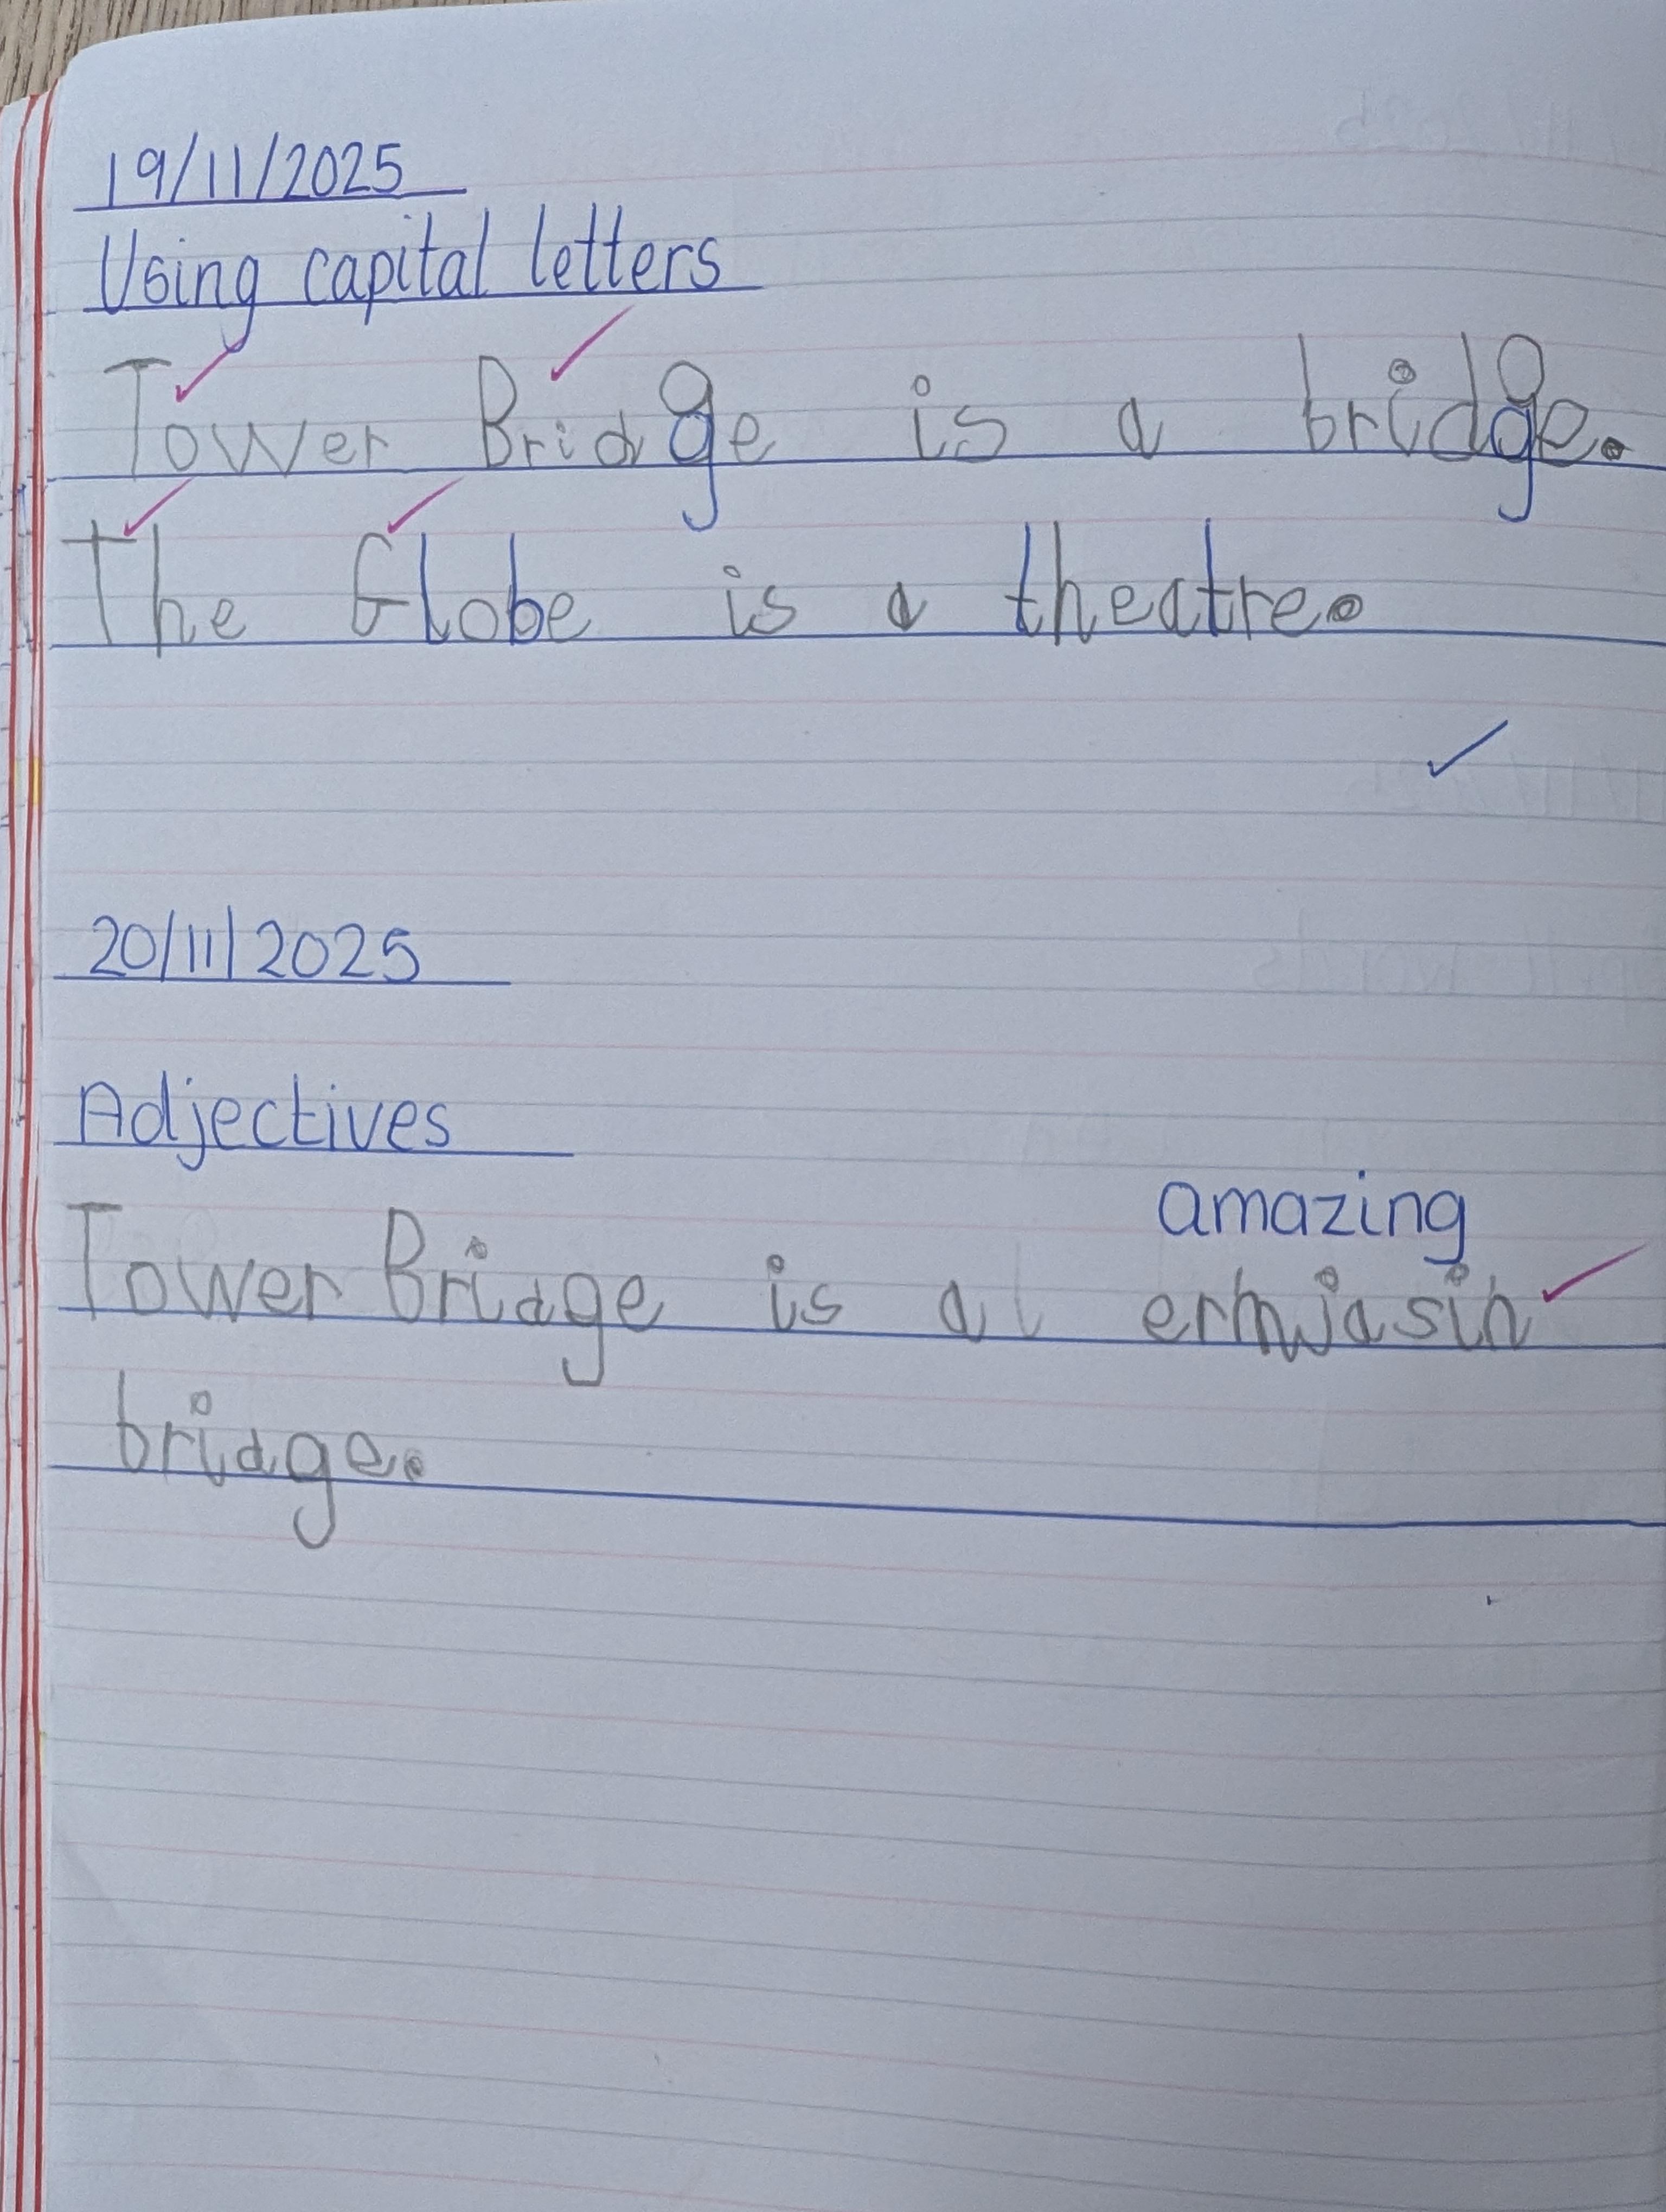 19/11/2025
Using capital letters
Tower Bridge is a bridge.
The Globe is a theatre.
20/11/2025
Adjectives
amazing
Tower Bridge is a ermjasin
bridge.